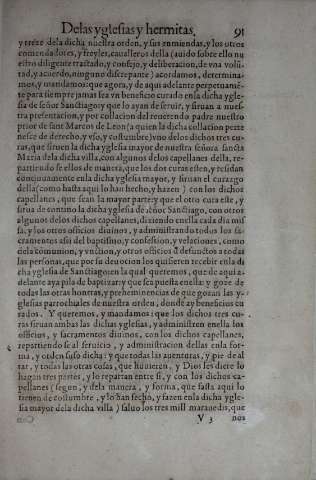 Delas yglesias y hermitas. 91
y treze dela dicha nuestra orden, y sus enmiendas, y los otros
comendadores, y freyles, caualleros della (auido sobre ello nu
estro diligente tractado, y consejo, y deliberacion, de vna volū
tad, y acuerdo, ninguno discrepante) acordamos, determina-
mos, y mandamos: que agora, y de aqui adelante perpetuamē
te para siempre jamas sea vn beneficio curado en la dicha ygle
sia de señor Sanctiago: y que lo ayan de seruir, y siruan a nues
tra presentacion, y por collacion del reuerendo padre nuestro
prior de sant Marcos de Leon (a quien la dicha collacion perte
nesce de derecho, y vso, y costumbre) vno delos dichos tres cu-
ras, que siruen la dicha yglesia mayor de nuestra señora sancta
Maria dela dicha villa, con algunos delos capellanes della, re-
partiendose ellos de manera, que los dos curas esten, y residan
conjuntamente enla dicha yglesia mayor, y siruan el curazgo
della (como hasta aqui lo han hecho, y hazen) con los dichos
capellanes, que sean la mayor parte: y que el otro cura este, y
sirua de contino la dicha yglesia de señor Sanctiago, con otros
algunos delos dichos capellanes, diziendo enella cada dia mis
sa, y los otros officios diuinos, y administrando todos los sa-
cramentos assi del baptismo, y confession, y velaciones, como
dela comunion, y vnction, y otros officios de defunctos a todas
las personas, que por su deuocion los quisieren recebir enla di
cha yglesia de Sanctiago: en la qual queremos, que de aqui a-
delante aya pila de baptizar: y que sea puesta enella: y goze de
todas las otras honrras, y preheminencias de que gozan las y-
glesias parrochiales de nuestra orden, donde ay beneficios cu
rados. Y queremos, y mandamos: que los dichos tres cu-
ras siruan ambas las dichas yglesias, y administren enella los
officios, y sacramentos diuinos, con los dichos capellanes,
repartiendose al seruicio, y administracion dellas enla for-
ma, y orden suso dicha: y que todas las auenturas, y pie de al
tar, y todas las otras cosas, que huuieren, y Dios les diere lo
hagan tres partes, y lo repartan entre si, y con los dichos ca-
pellanes (segun, y dela manera, y forma, que fasta aqui lo
tienen de costumbre, y lo han fecho, y fazen enla dicha ygle-
sia mayor dela dicha villa) saluo los tres mill marauedis, que
V 3 nos